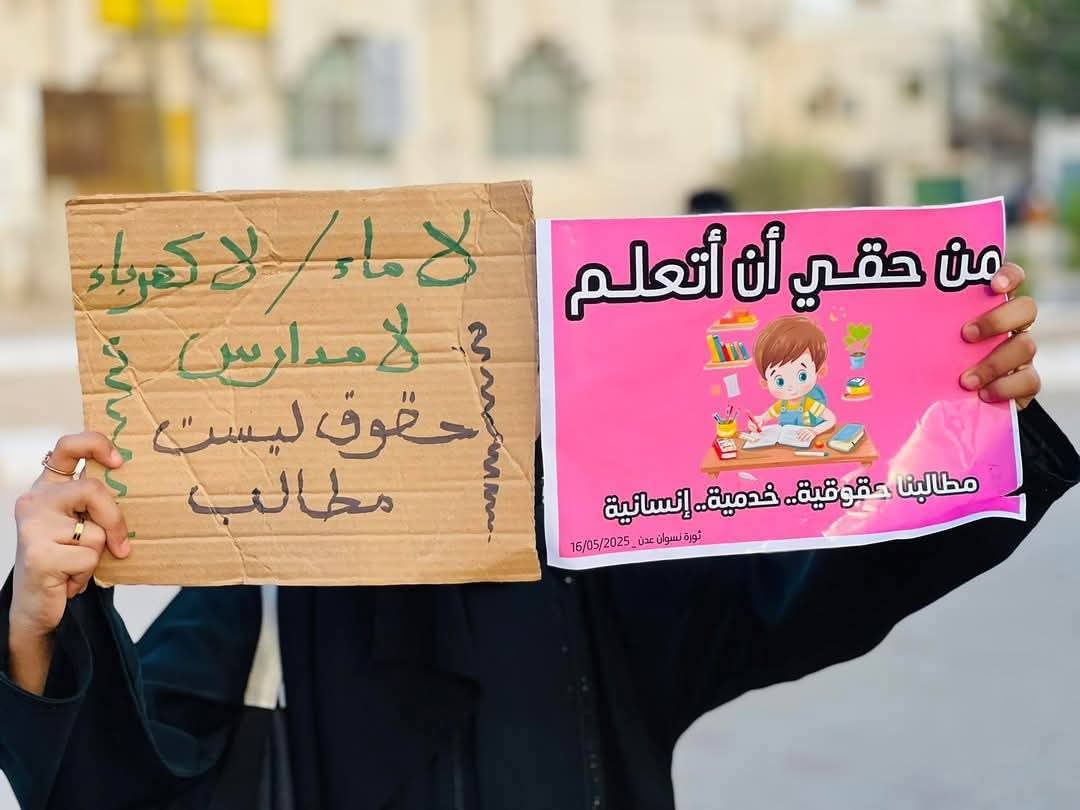 لا ماء / لا كهرباء
لا مدارس
حقوق ليست
مطالب
من حقي أن أتعلم
مطالبنا حقوقية.. خدمية.. إنسانية
ثورة نسوان عدن _ 16/05/2025